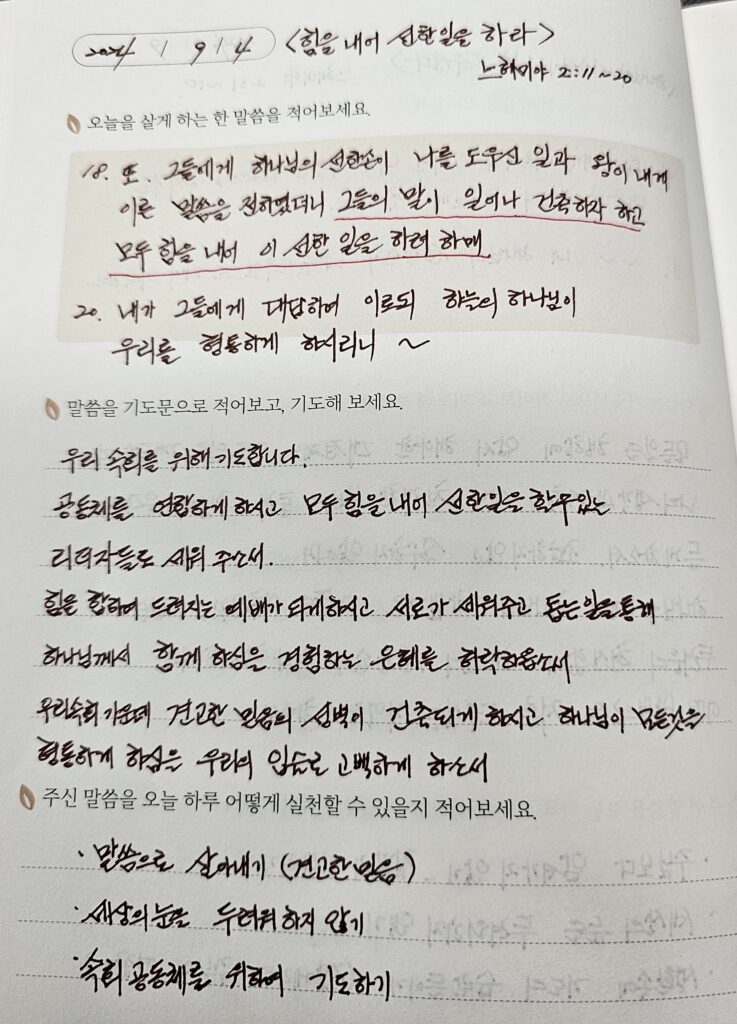 2024 / 9 / 4 <힘을 내어 선한 일을 하라>
느헤미야 2:11~20
오늘을 살게 하는 한 말씀을 적어보세요.
18. 또. 그들에게 하나님의 선한손이 나를 도우신 일과 왕이 내게
이른 말씀을 전하였더니 그들의 말이 일어나 건축하자 하고
모두 힘을 내어 이 선한 일을 하려 하매
20. 내가 그들에게 대답하여 이로되 하늘의 하나님이
우리를 형통하게 하시리니 ~
말씀을 기도문으로 적어보고, 기도해 보세요.
우리 속회를 위해 기도합니다.
공동체를 연합하게 하시고 모두 힘을 내어 선한일을 할수있는
리더자들도 세워 주소서.
힘을 합하여 드려지는 예배가 되게하시고 서로가 세워주고 돕는일을통해
하나님께서 함께 하심을 경험하는 은혜를 허락하옵소서
우리속회가운데 견고한 믿음의 성벽이 건축되게 하시고 하나님이 모든것을
형통하게 하심을 우리의 입술로 고백하게 하소서
주신 말씀을 오늘 하루 어떻게 실천할 수 있을지 적어보세요.
· 말씀으로 살아내기 (견고한 믿음)
· 세상의 눈을 두려워 하지 않기
· 속회 공동체를 위하여 기도하기